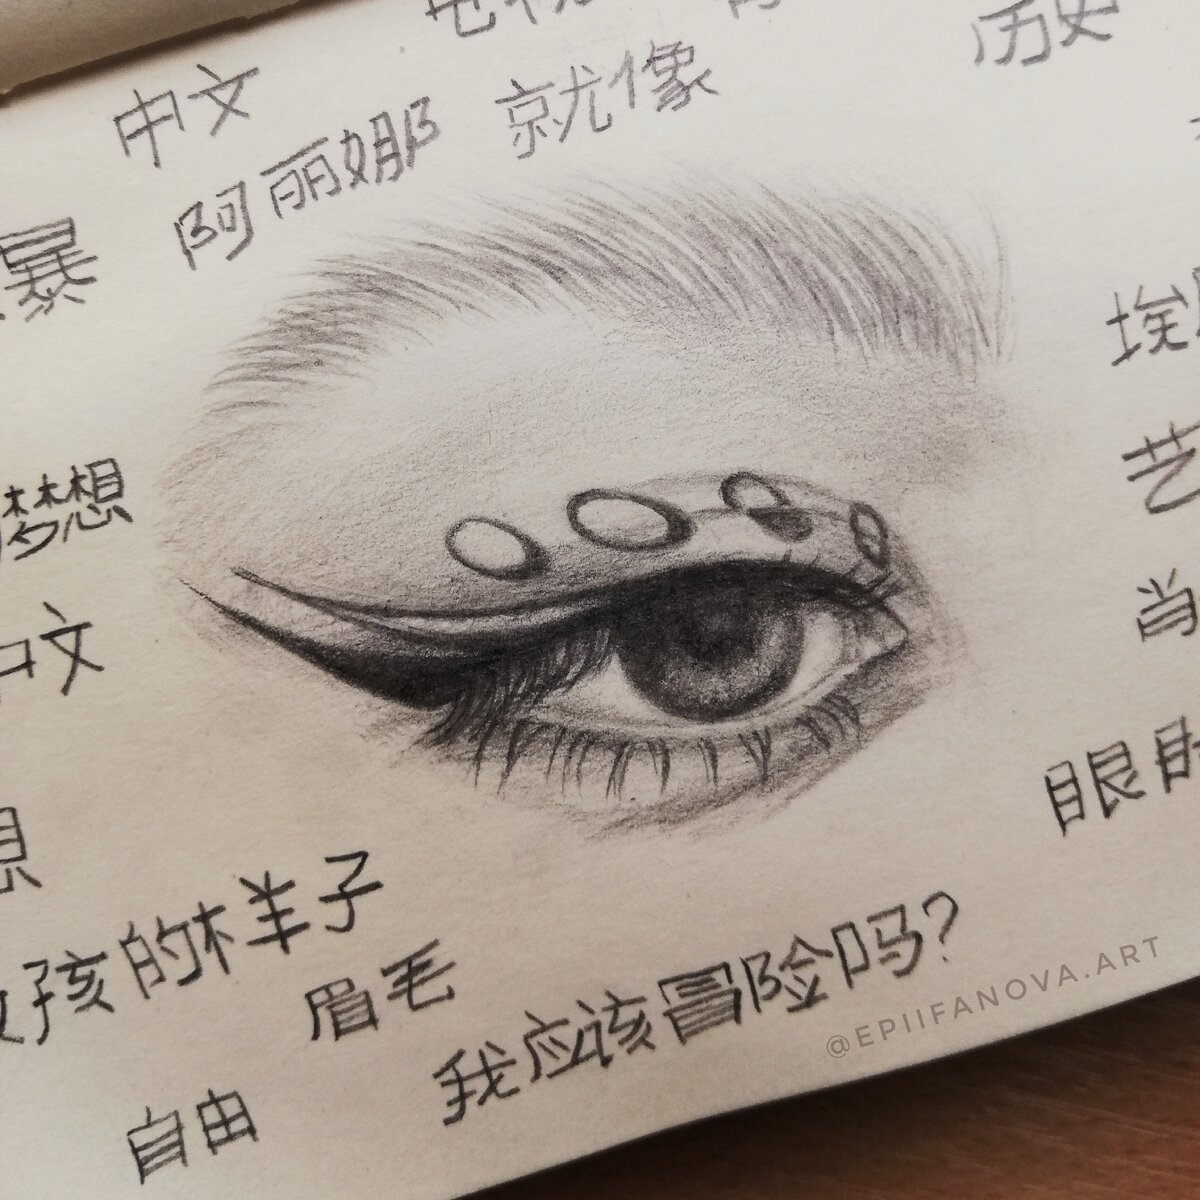 历史
中文
阿丽娜 就像
暴
埃
梦想
艺
中文
肖
眼
想
孩的样子
眉毛
我应该冒险吗?
@EPIIFANOVA.ART
自由